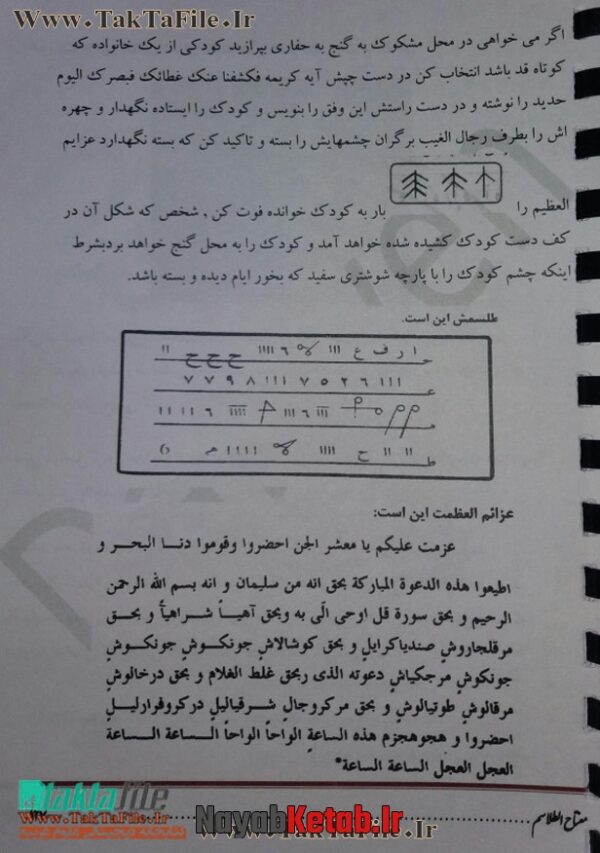 Www.TakTaFile.Ir
Www.TakTaFile.Ir
اگر می خواهی در محل مشکوک به گنج به حفاری بپرازید کودکی از یک خانواده که
کوتاه قد باشد انتخاب کن در دست چپش آیه کریمه فکشفنا عنک غطائک فبصرک الیوم
حدید را نوشته و در دست راستش این وفق را بنویس و کودک را ایستاده نگهدار و چهره
اش را بطرف رجال الغیب برگران چشمهایش را بسته و تاکید کن که بسته نگهدارد عزایم
العظیم را بار به کودک خوانده فوت کن , شخص که شکل آن در
کف دست کودک کشیده شده خواهد آمد و کودک را به محل گنج خواهد بردبشرط
اینکه چشم کودک را با پارچه شوشتری سفید که بخور ایام دیده و بسته باشد.
طلسمش این است.
ا ر ف ع ااا ٦ اااا ح ح ح اا
ااا ٦ ٢ ٥ ٧ ااا ٨ ٩ ٧ ٧
عزائم العظمت این است:
عزمت علیکم یا معشر الجن احضروا وقوموا دنـا البـحـر و
اطیعوا هذه الدعوة المبارکة بحق انه من سلیمان و انه بسم الله الرحمن
الرحیم و بحق سورة قل اوحی الّی به وبحق آهیـاً شـراهیـاً و بحـق
مرقلجاروشٍ صندیاکرایلٍ و بحق کوشالاشٍ جونکـوشٍ جونکـوشٍ
جونکوشٍ مرجکیاشٍ دعوته الذی ربحق غلظ الغلام و بحق درخالوشٍ
مرقالوشٍ طوتیالوشٍ و بحق مرکروجالٍ شـرقیالیلٍ درکروفرارلیـلٍ
احضروا و هجوهجزم هذه الساعةِ الواحاً الواحاً الـساعة الـساعة
العجل العجل الساعة الساعة*
مفتاح الطلاسم
taktafile
Www.TakTaFile.Ir
NayabKetab.Ir
Www.TakTaFile.Ir